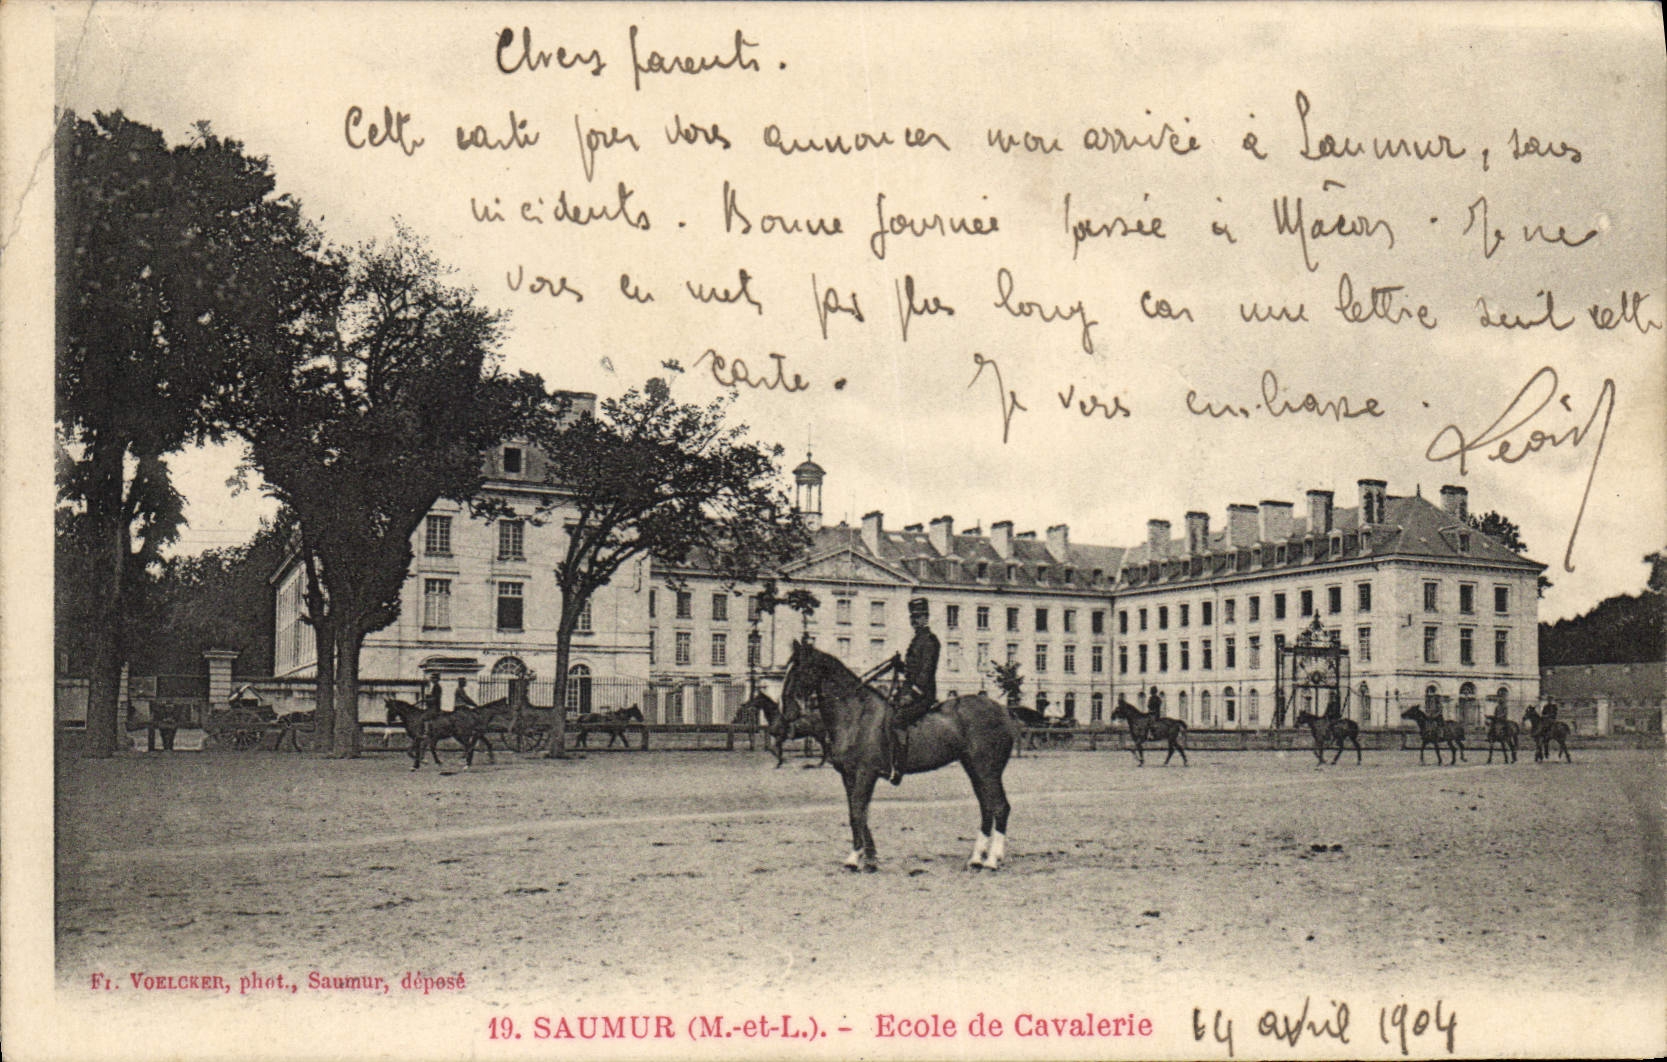 Chers parents.
Cette carte pour vous annoncer mon arrivée à Saumur, sans
incidents. Bonne journée passée à Mâcon. Je ne
vous en mets pas plus long car une lettre suit cette
carte. Je vous embrasse.
Fr. VOELCKER, phot., Saumur, déposé
19. SAUMUR (M.-et-L.). - Ecole de Cavalerie 14 avril 1904